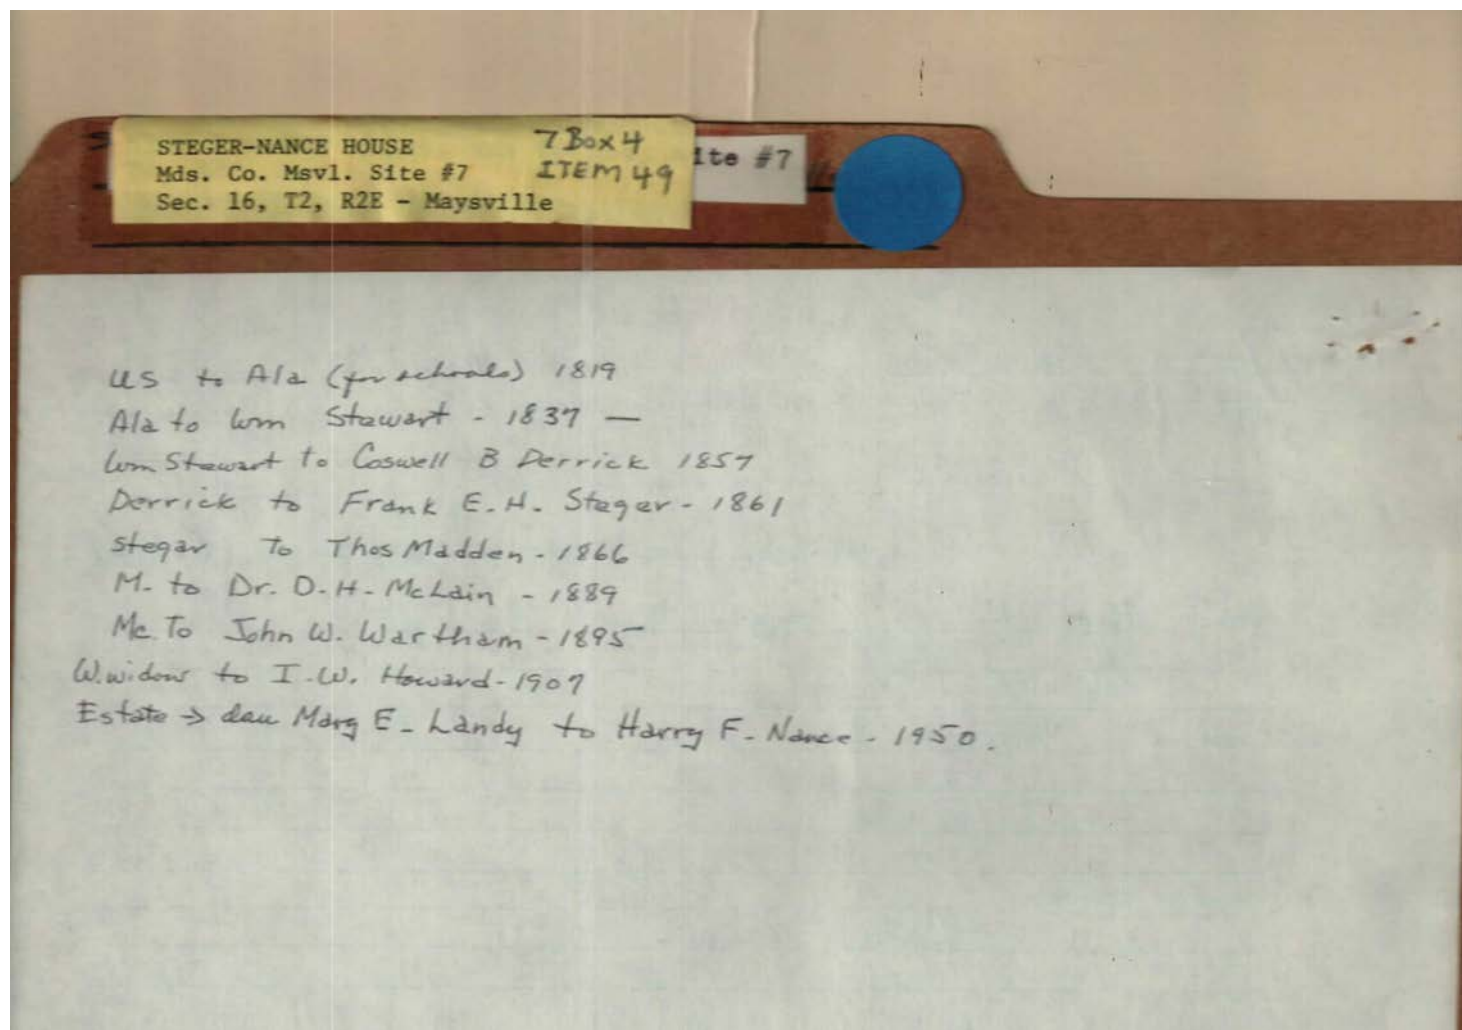 STEGER-NANCE HOUSE 7 Box 4
Mds. Co. Msvl. Site #7 ITEM 49
Sec. 16, T2, R2E - Maysville
ite #7
US to Ala (for schools) 1819
Ala to Wm Stewart - 1837 —
Wm Stewart to Coswell B Derrick 1857
Derrick to Frank E. H. Steger - 1861
Stegar To Thos Madden - 1866
M. to Dr. O. H. McLain - 1889
Mc To John W. Wartham - 1895
W. widow to I. W. Howard - 1907
Estate → dau Marg E. Landy to Harry F. Nance - 1950.